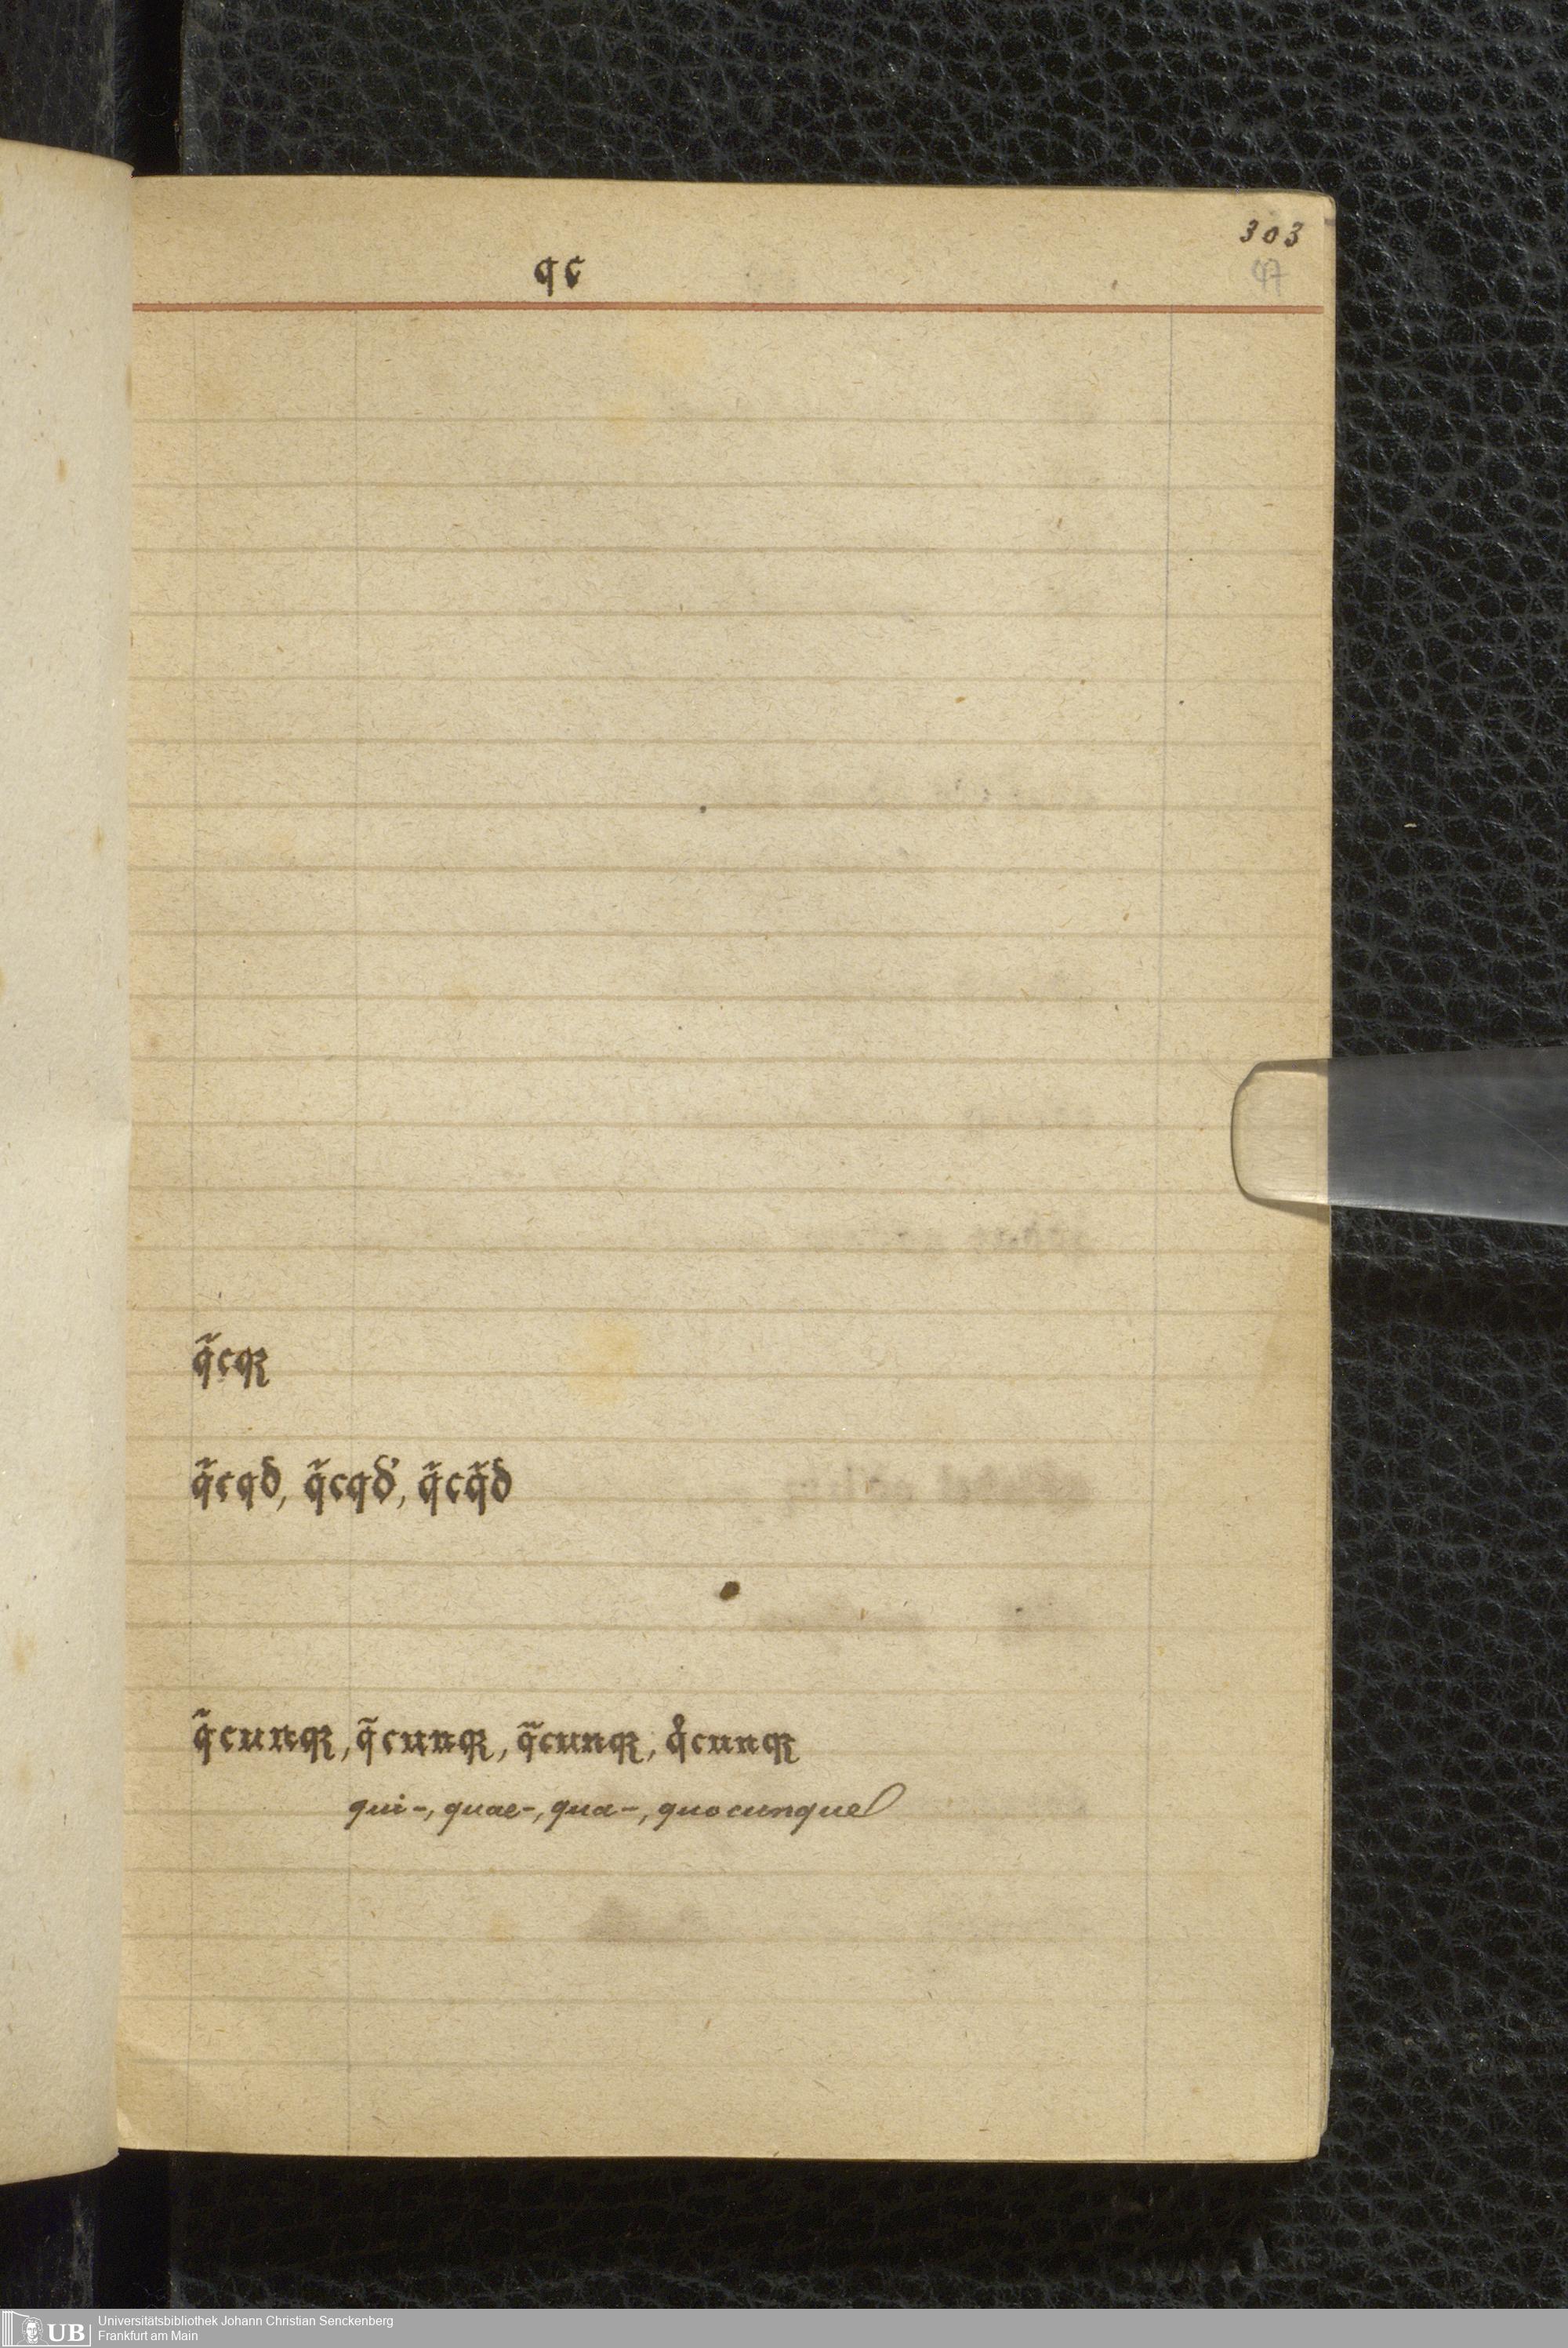 303
qc
q̃cqꝫ
q̃cqð, q̃cqð', q̃cq̃ð
q̃cunqꝫ, q̃cunqꝫ, q̃cunqꝫ, q̊cunqꝫ
qui-, quae-, qua-, quocunque
UB Universitätsbibliothek Johann Christian Senckenberg
Frankfurt am Main